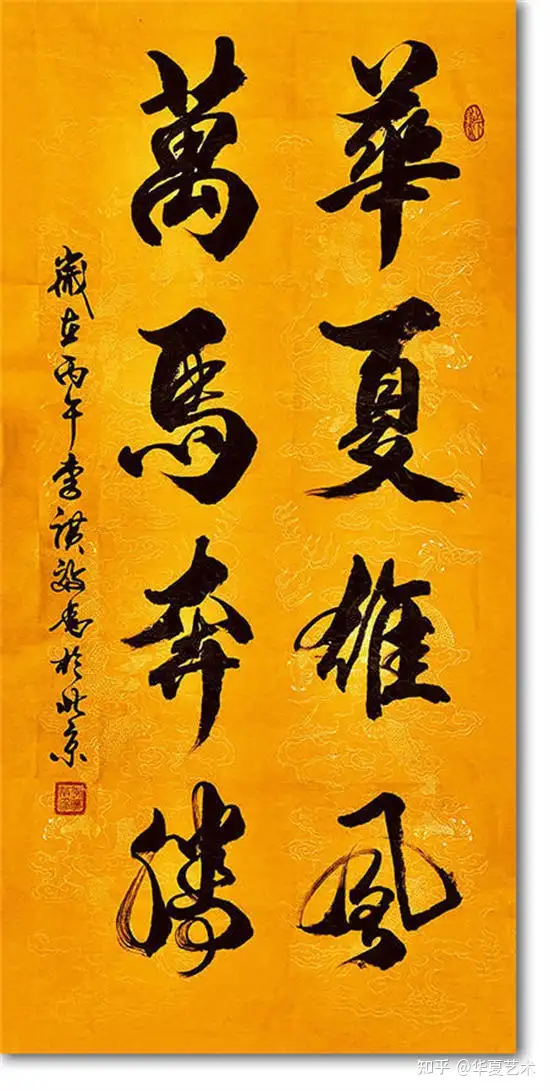 華夏雄風
萬馬奔騰
歲在丙午李敬書於北京
知乎 @华夏艺术